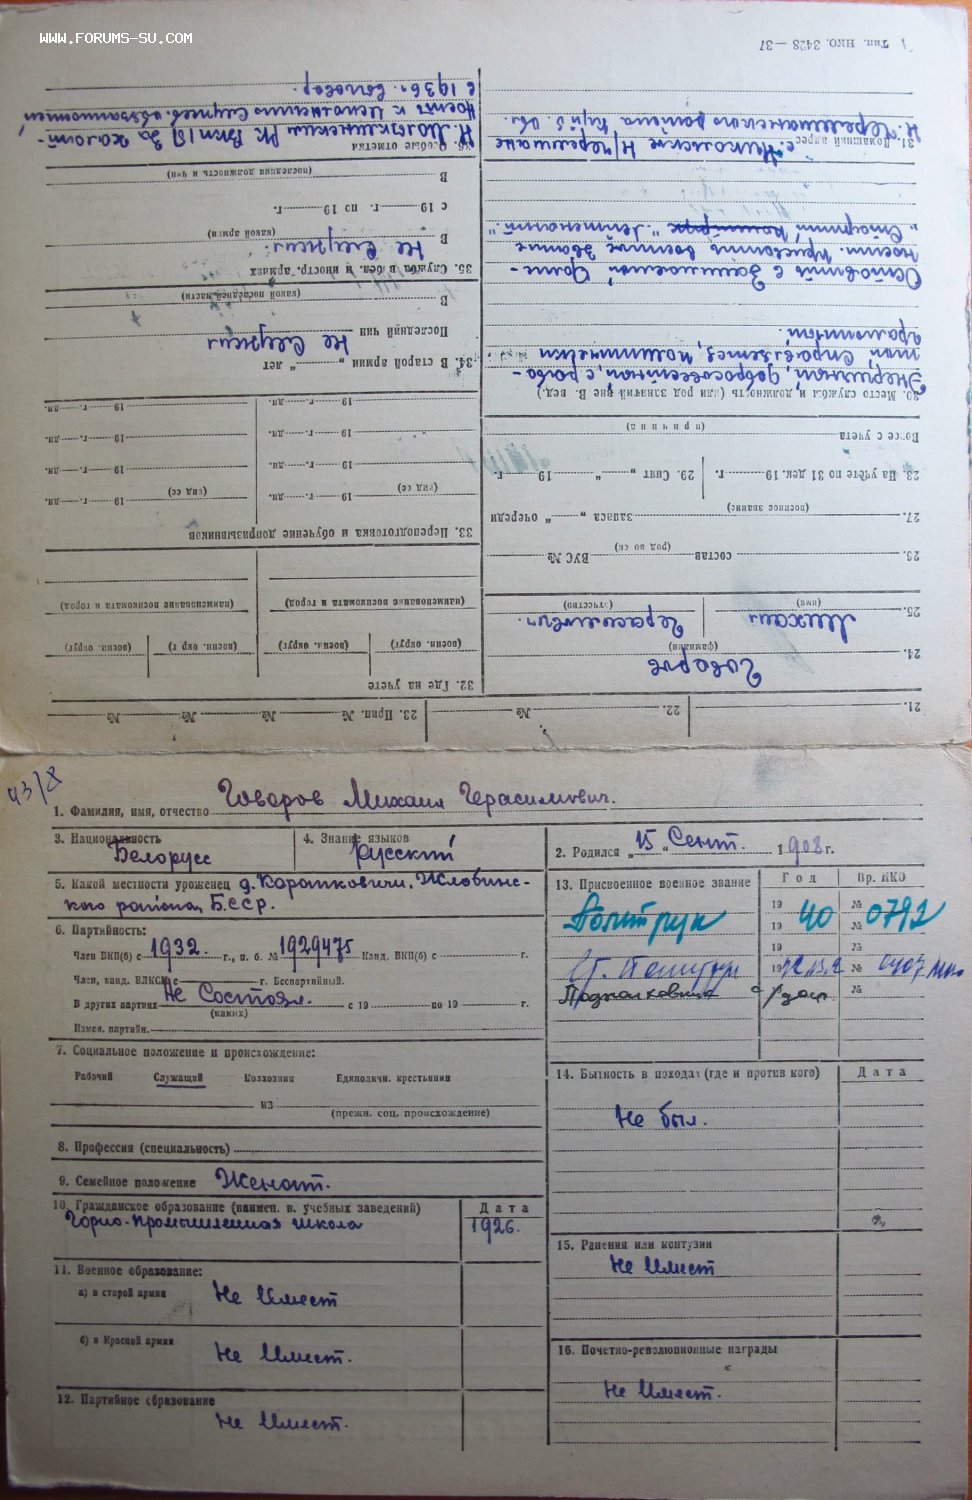 WWW.FORUMS-SU.COM
Тип. НКО. 3428—37
43/8
1. Фамилия, имя, отчество Говоров Михаил Герасимович.
3. Национальность Белорусс
4. Знание языков Русский
2. Родился „15“ Сент. 1908 г.
5. Какой местности уроженец д. Коротковичи, Жлобинс-
кого района, БССР.
6. Партийность:
Член ВКП(б) с 1932. г., п. б. № 1929475 Канд. ВКП(б) с г.
Член, канд. ВЛКСМ с г. Беспартийный.
В других партиях Не Состоял. с 19 по 19 г.
(каких)
Измен. партийн.
7. Социальное положение и происхождение:
Рабочий Служащий Колхозник Единоличн. крестьянин
из
(прежн. соц. происхождение)
8. Профессия (специальность)
9. Семейное положение Женат.
10. Гражданское образование (наимен. в. учебных заведений) Дата
Горно-промышленная школа 1926.
11. Военное образование:
а) в старой армии Не Имеет
б) в Красной армии Не Имеет.
12. Партийное образование
Не Имеет.
13. Присвоенное военное звание Год Пр. НКО
Политрук 19 40 № 0792
Ст. Политрук 19 №
Подполковник №
14. Бытность в походах (где и против кого) Дата
Не был.
15. Ранения или контузии
Не Имеет
16. Почетно-революционные награды
Не Имеет.
21. 22. № 23. Прип. № № № №
24. Говоров
(фамилия)
25. Михаил Герасимович.
(имя) (отчество)
26. состав ВУС №
(род во ск)
27. запаса „ “ очереди
(военное звание)
28. На учете по 31 дек. 19 г. 29. Снят „ “ 19 г.
Вовсе с учета
(причина)
30. Место службы и должность (или род занятий вне В. вед.)
Энергичный, добросовестный, с рабо-
той справляется, политически
грамотный.
Оставить в занимаемой долж-
ности. Присвоить военное звание
„Старший Лейтенант“.
31. Домашний адрес с. Никольское Н/Черемшане
Н. Черемшанского района Куйб. Обл.
32. Где на учете
(военн. округ) (военн. округ) (военн. окр г) (военн. округ)
(наименование военкомата и город) (наименование военкомата и город)
33. Переподготовка и обучение допризывников
19 г. дн. 19 г. дн.
(вид сс) (вид сс)
19 г. дн. 19 г. дн.
19 г. дн. 19 г. дн.
19 г. дн. 19 г. дн.
34. В старой армии „ “ лет
Последний чин Не Служил
В
(какой последней части)
35. Служба в бел. и иностр. армиях
В Не Служил.
(какой армии)
с 19 г. по 19 г.
В
(последняя должность и чин)
36. Особые отметки
РК ВКП/б/ За халат-
ность к исполнению служеб. обязанностей
с 1936г. Выговор.